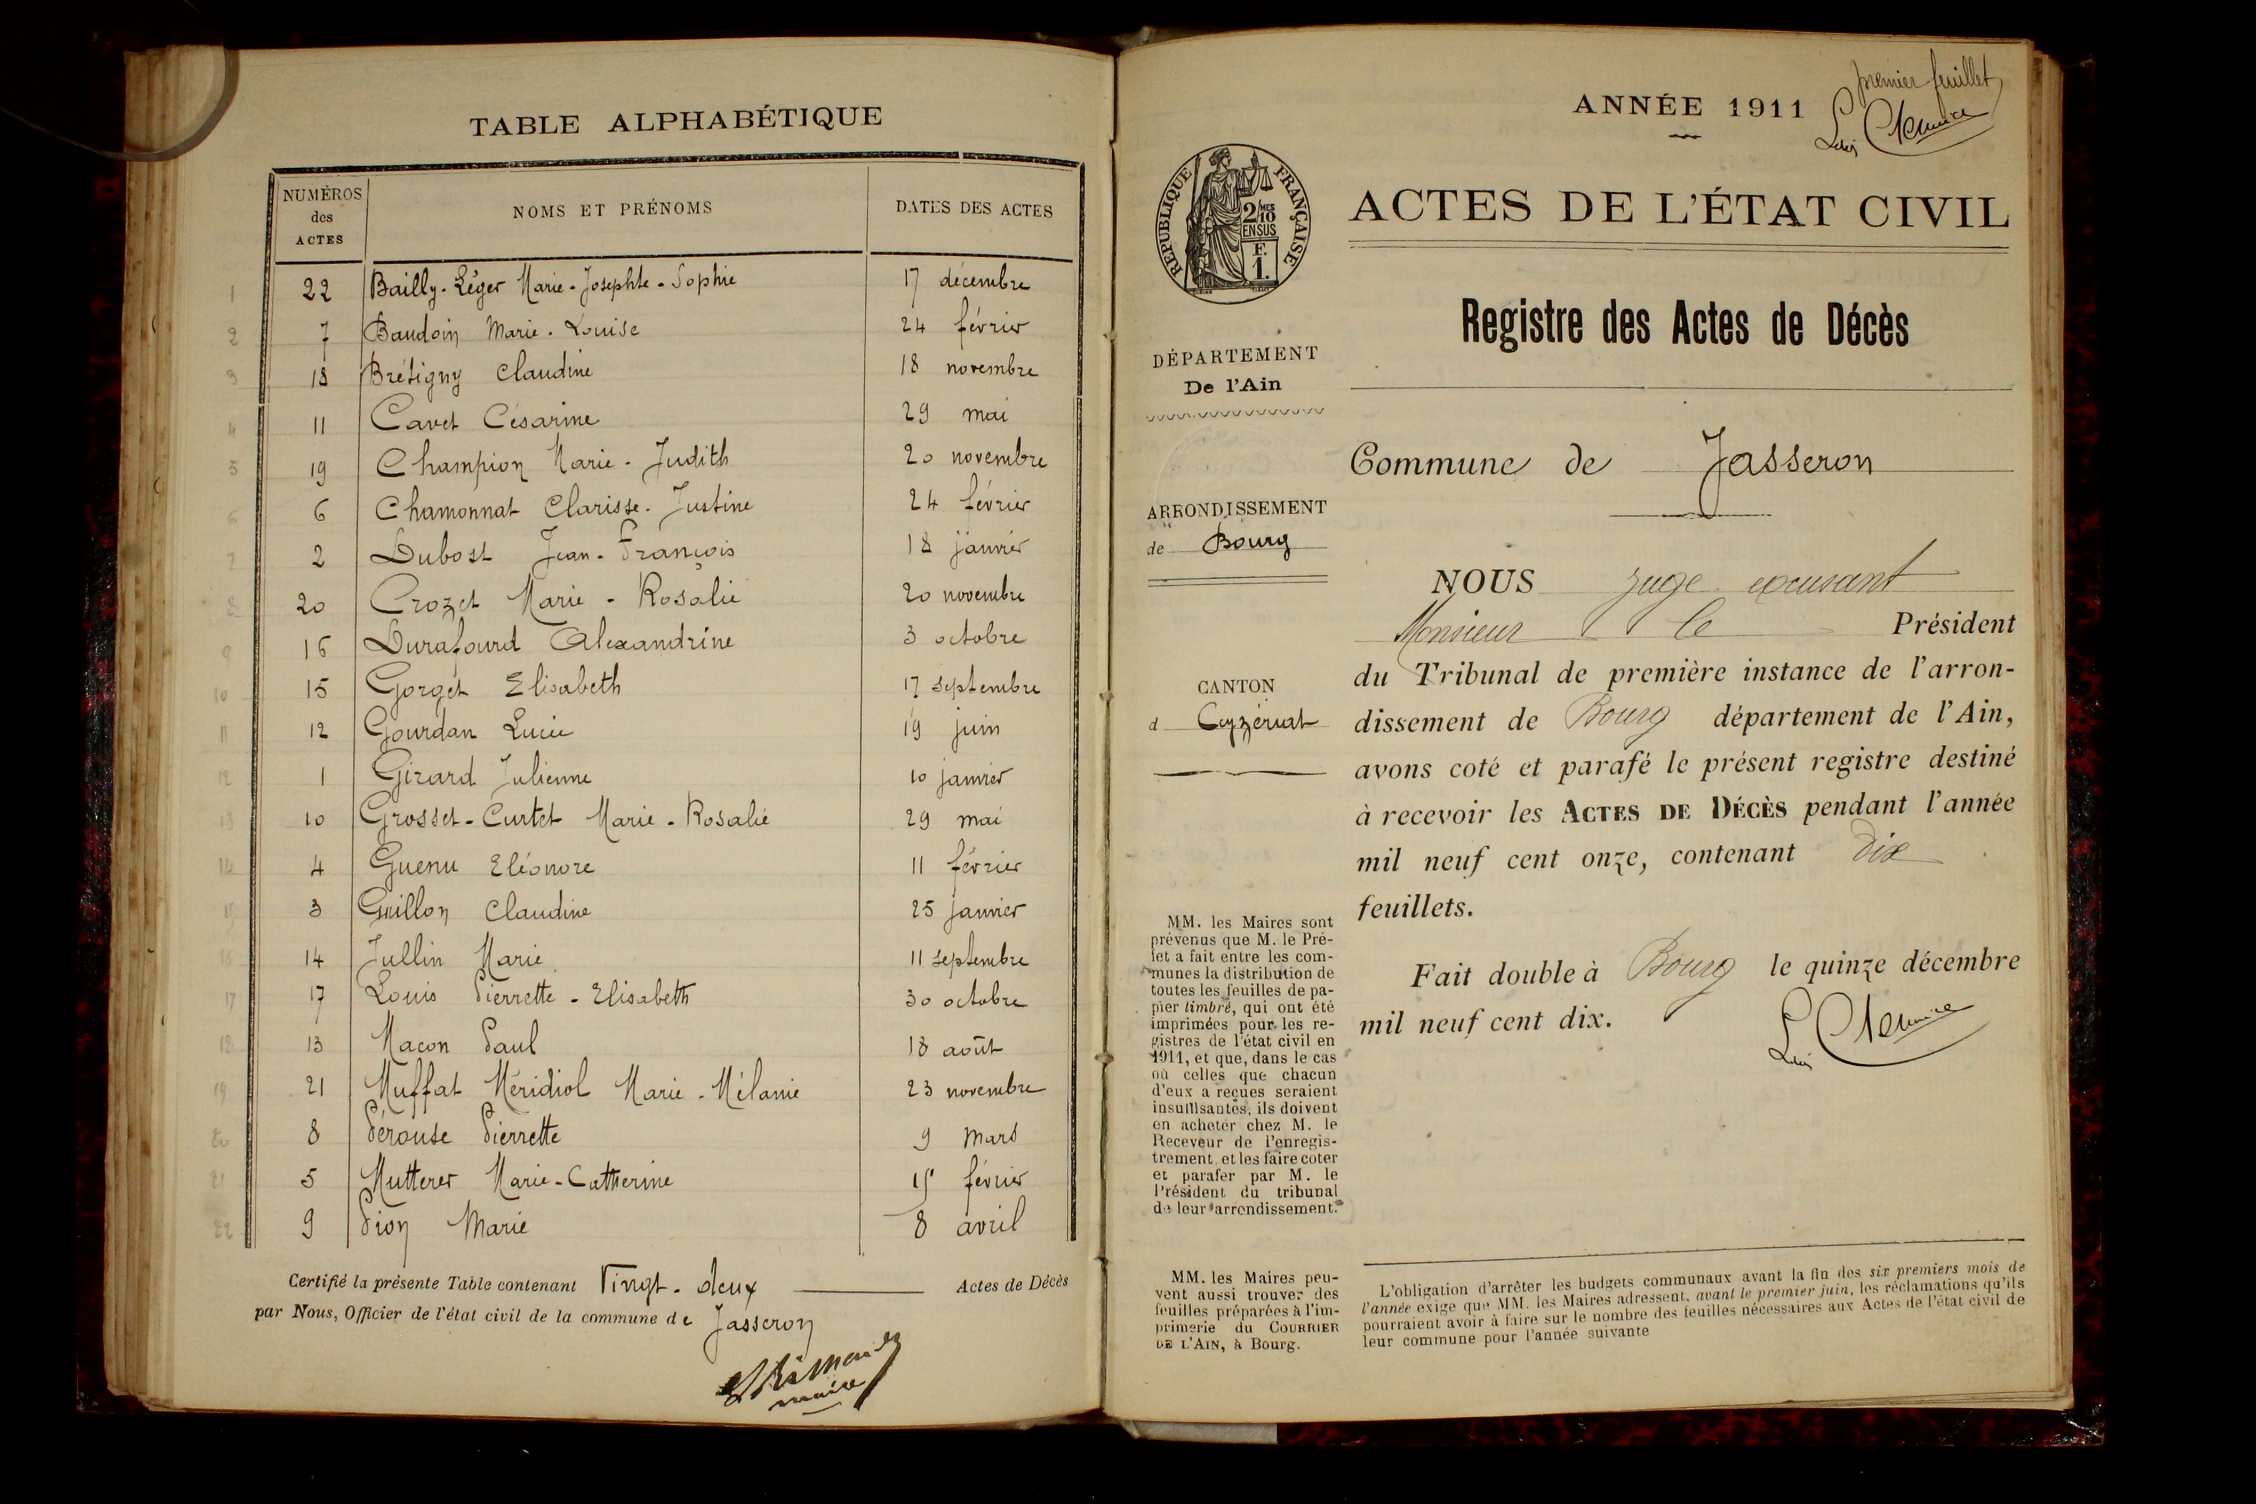 TABLE ALPHABÉTIQUE
NUMÉROS des ACTES NOMS ET PRÉNOMS DATES DES ACTES
1 22 Bailly-Léger Marie-Josephte-Sophie 17 décembre
2 7 Baudoin Marie-Louise 24 février
3 18 Brétigny Claudine 18 novembre
4 11 Cavet Césarine 29 mai
5 19 Champion Marie-Judith 20 novembre
6 6 Chamonnat Clarisse-Justine 24 février
7 2 Dubost Jean-François 18 janvier
8 20 Crozet Marie-Rosalie 20 novembre
9 16 Durafourd Alexandrine 3 octobre
10 15 Gorget Elisabeth 17 septembre
11 12 Gourdan Lucie 19 juin
12 1 Girard Julienne 10 janvier
13 10 Grosset-Curtet Marie-Rosalie 29 mai
14 4 Guenu Eléonore 11 février
15 3 Guillon Claudine 25 janvier
16 14 Jullin Marie 11 septembre
17 17 Louis Pierrette-Elisabeth 30 octobre
18 13 Macon Paul 18 août
19 21 Muffat Méridiol Marie-Mélanie 23 novembre
20 8 Pérouse Pierrette 9 Mars
21 5 Mutterer Marie-Catherine 15 février
22 9 Pion Marie 8 avril
Certifié la présente Table contenant Vingt-deux Actes de Décès
par Nous, Officier de l'état civil de la commune de Jasseron
maire
premier feuillet
ANNÉE 1911
RÉPUBLIQUE FRANÇAISE
2/10 MES
EN SUS
F.
1.
ACTES DE L'ÉTAT CIVIL
Registre des Actes de Décès
DÉPARTEMENT
De l'Ain
ARRONDISSEMENT
de Bourg
CANTON
d Ceyzériat
MM. les Maires sont
prévenus que M. le Pré-
fet a fait entre les com-
munes la distribution de
toutes les feuilles de pa-
pier timbré, qui ont été
imprimées pour les re-
gistres de l'état civil en
1911, et que, dans le cas
où celles que chacun
d'eux a reçues seraient
insuffisantes, ils doivent
en acheter chez M. le
Receveur de l'enregis-
trement, et les faire coter
et parafer par M. le
Président du tribunal
de leur arrondissement.
MM. les Maires peu-
vent aussi trouver des
feuilles préparées à l'im-
primerie du COURRIER
DE L'AIN, à Bourg.
Commune de Jasseron
NOUS juge excusant
Monsieur le Président
du Tribunal de première instance de l'arron-
dissement de Bourg département de l'Ain,
avons coté et parafé le présent registre destiné
à recevoir les ACTES DE DÉCÈS pendant l'année
mil neuf cent onze, contenant dix
feuillets.
Fait double à Bourg le quinze décembre
mil neuf cent dix.
L'obligation d'arrêter les budgets communaux avant la fin des six premiers mois de
l'année exige que MM. les Maires adressent, avant le premier juin, les réclamations qu'ils
pourraient avoir à faire sur le nombre des feuilles nécessaires aux Actes de l'état civil de
leur commune pour l'année suivante